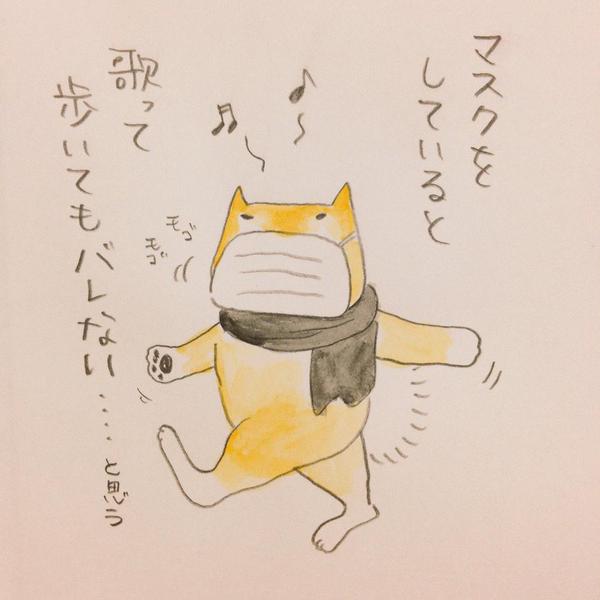 マスクを
していると
歌って
歩いてもバレない....
と思う
モゴ
モゴ